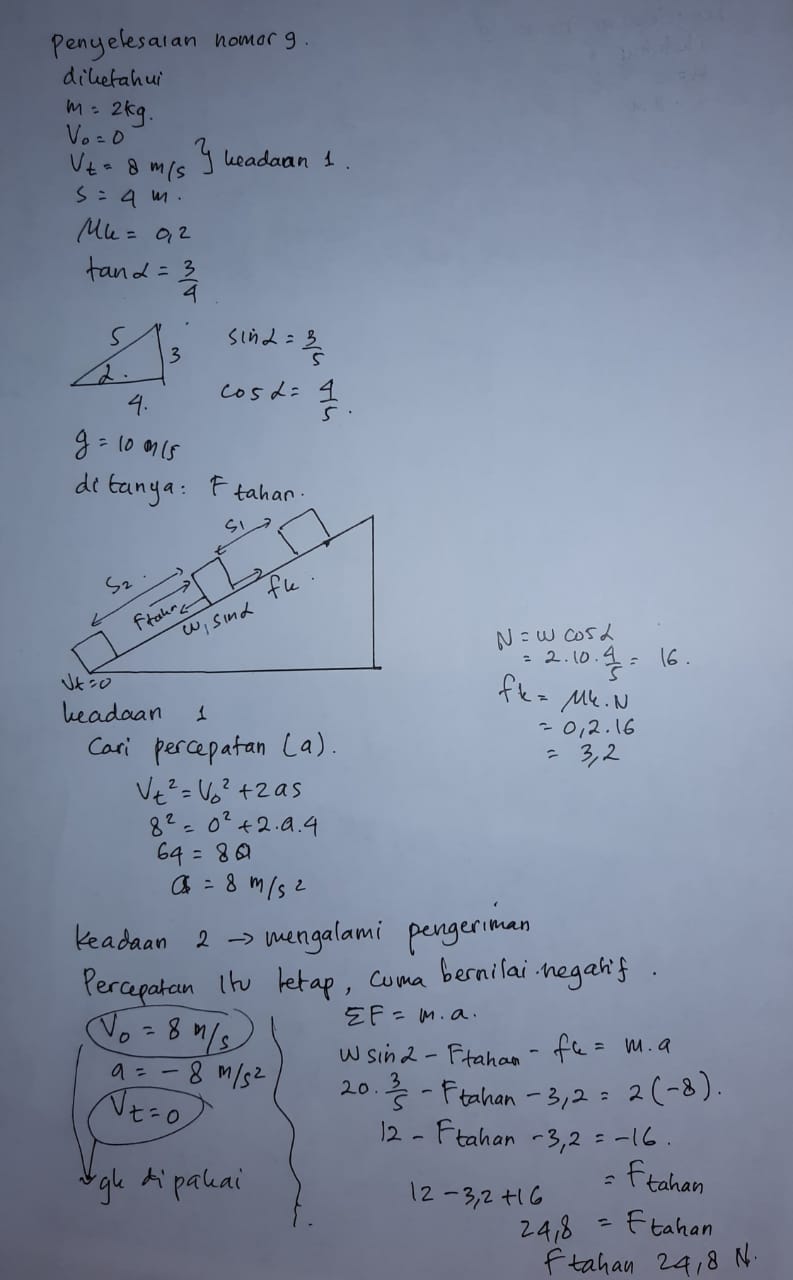 Penyelesaian nomor 9.
diketahui
m = 2kg.
V₀ = 0
Vt = 8 m/s } keadaan 1.
S = 4 m.
Mk = 0,2
tan α = 3/4
5
3
α.
4.
sin α = 3/5
cos α = 4/5.
g = 10 m/s
ditanya: F tahan.
S1
S2
F tahan
fk.
W, sin α
Vt=0
N = W cos α
= 2.10.4/5 = 16.
fk = Mk.N
= 0,2.16
= 3,2
keadaan 1
Cari percepatan (a).
Vt² = V₀² + 2as
8² = 0² + 2.a.4
64 = 8a
a = 8 m/s2
Keadaan 2 → mengalami pengeriman
Percepatan itu tetap, cuma bernilai negatif.
V₀ = 8 m/s
a = - 8 m/s2
Vt = 0
gk dipakai
ΣF = m.a.
W sin α - Ftahan - fk = m.a
20. 3/5 - Ftahan - 3,2 = 2(-8).
12 - Ftahan - 3,2 = -16.
12 - 3,2 + 16 = Ftahan
24,8 = Ftahan
F tahan 24,8 N.